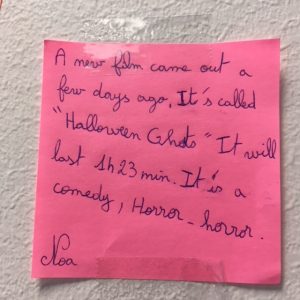 A new film came out a
few days ago. It's called
"Halloween Ghots" It will
last 1h23 min. It is a
comedy, Horror - horror.
Noa